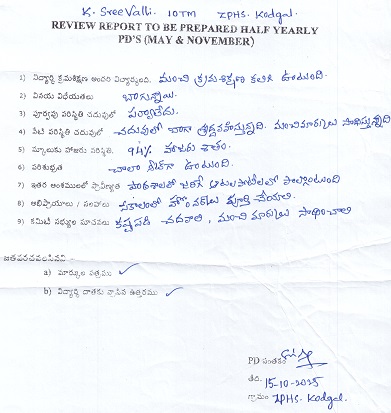 K. SreeValli. 10TM ZPHS. Kodgal.
REVIEW REPORT TO BE PREPARED HALF YEARLY
PD'S (MAY & NOVEMBER)
1) విద్యార్థి క్రమశిక్షణ అందరి విద్యార్థులంది. మంచి క్రమశిక్షణ కలిగి ఉంటుంది.
2) వినయ విధేయతలు బాగున్నాయి.
3) పూర్వపు పరిస్థితి చదువులో పర్వాలేదు.
4) నేటి పరిస్థితి చదువులో చదువులో బాగా శ్రద్ధవహిస్తున్నది. మంచిమార్కులు సాధిస్తున్నది
5) స్కూలుకు హాజరు పరిస్థితి. 94% హాజరు శాతం.
6) పరిశుభ్రత చాలా నీట్‌గా ఉంటుంది.
7) ఇతర అంశములలో ప్రావీణ్యత పాఠశాలలో జరిగే ఆటలపోటీలలో పాల్గొంటుంది
8) అభిప్రాయాలు / సలహాలు సకాలంలో హోంవర్క్‌లు పూర్తి చేయాలి.
9) కమిటి సభ్యుల సూచనలు కష్టపడి చదవాలి, మంచి మార్కులు సాధించాలి
జతపరచవలసినవి -
a) మార్కుల పత్రము ✓
b) విద్యార్థి దాతకు వ్రాసిన ఉత్తరము ✓
PD సంతకం
తేది. 15-10-2025
గ్రామం ZPHS. Kodgal.